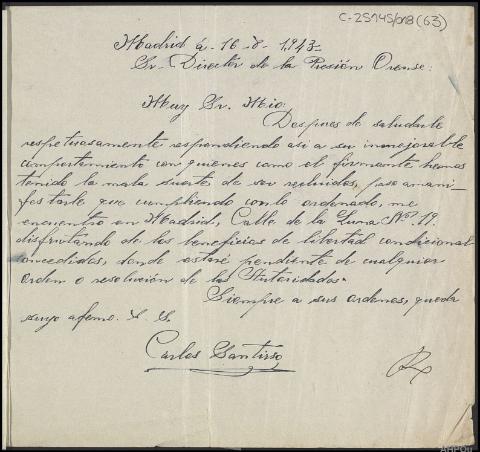 C-25145/018 (63)
Madrid á 16-8-1943-
Sr. Director de la Prisión Orense:
Muy Sr. Mio:
Despues de saludarle
respetuosamente respondiendo asi a su inmejorable
comportamiento con quienes como el firmante hemos
tenido la mala suerte de ser recluidos, paso a mani-
festarle que cumpliendo con lo ordenado, me
encuentro en Madrid, Calle de la Luna Nº 19.
disfrutando de los beneficios de libertad condicional
concedidos, donde estaré pendiente de cualquier
orden o resolución de las Autoridades.
Siempre a sus ordenes, queda
suyo afemo. S. S.
Carlos Santirso
AHPOu